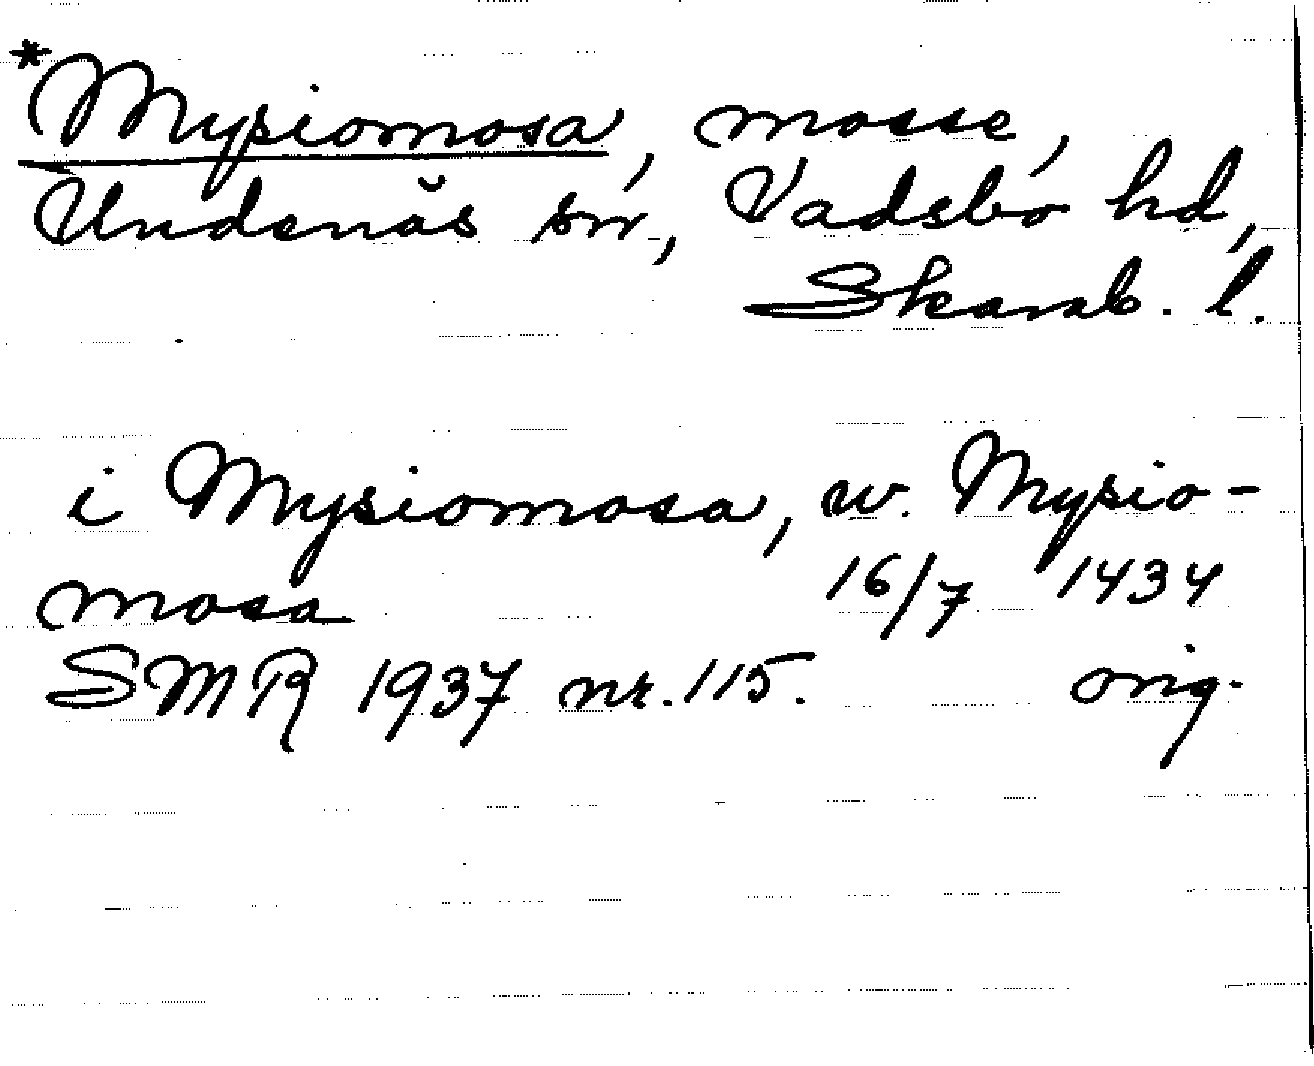 *Mysiomosa, mosse,
Undenäs sn, Vadsbo hd,
Skarab. l.
i Mysiomosa, w. Mysio-
mosa 16/7 1434
SMR 1937 nr. 115. orig.